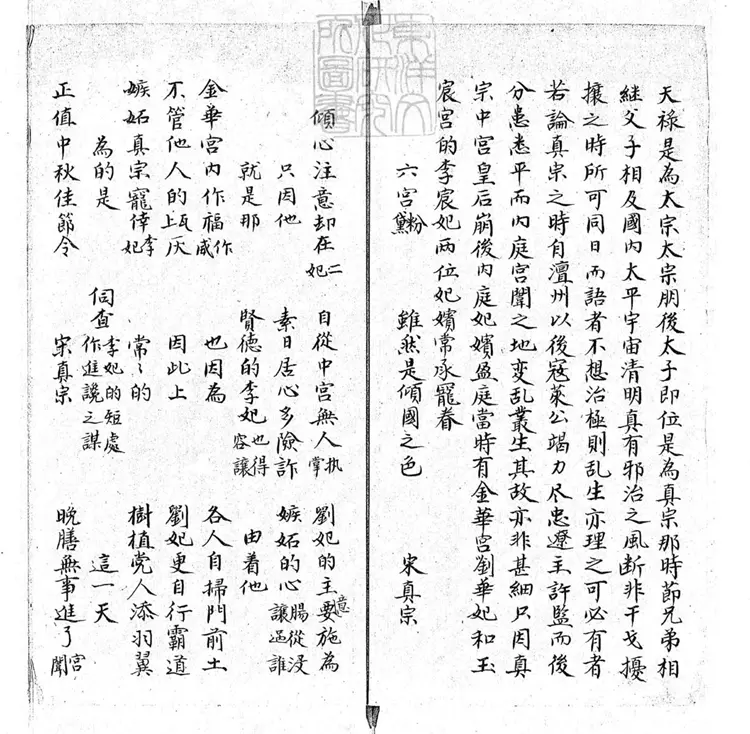 東洋文化研究所圖書
天祿是為太宗太宗朋後太子即位是為真宗那時節兄弟相
継父子相及國內太平宇宙清明真有邪治之風断非干戈擾
攘之時所可同日而語者不想治極則乱生亦理之可必有者
若論真宗之時自澶州以後寇萊公竭力尽忠遼主許監而後
分患悉平而內庭宮闈之地变乱叢生其故亦非甚細只因真
宗中宮皇后崩後內庭妃嬪盈庭當時有金華宮劉華妃和玉
宸宮的李宸妃兩位妃嬪常承寵眷
六宮粉黛 雖然是傾國之色 宋真宗
傾心注意却在二妃 自從中宮無人执掌 劉妃的主意要施為
只因他 素日居心多險詐 嫉妬的心腸從没讓過誰
就是那 賢德的李妃也得容讓 由着他
金華宮內作福作威 也因為 各人自掃門前土
不管他人的上瓦灰 因此上 劉妃更自行霸道
嫉妬真宗寵倖李妃 常〻的 樹植党人添羽翼
為的是 伺查李妃的短處作進讒之謀 這一天
正值中秋佳節令 宋真宗 晚膳無事進了宮闈